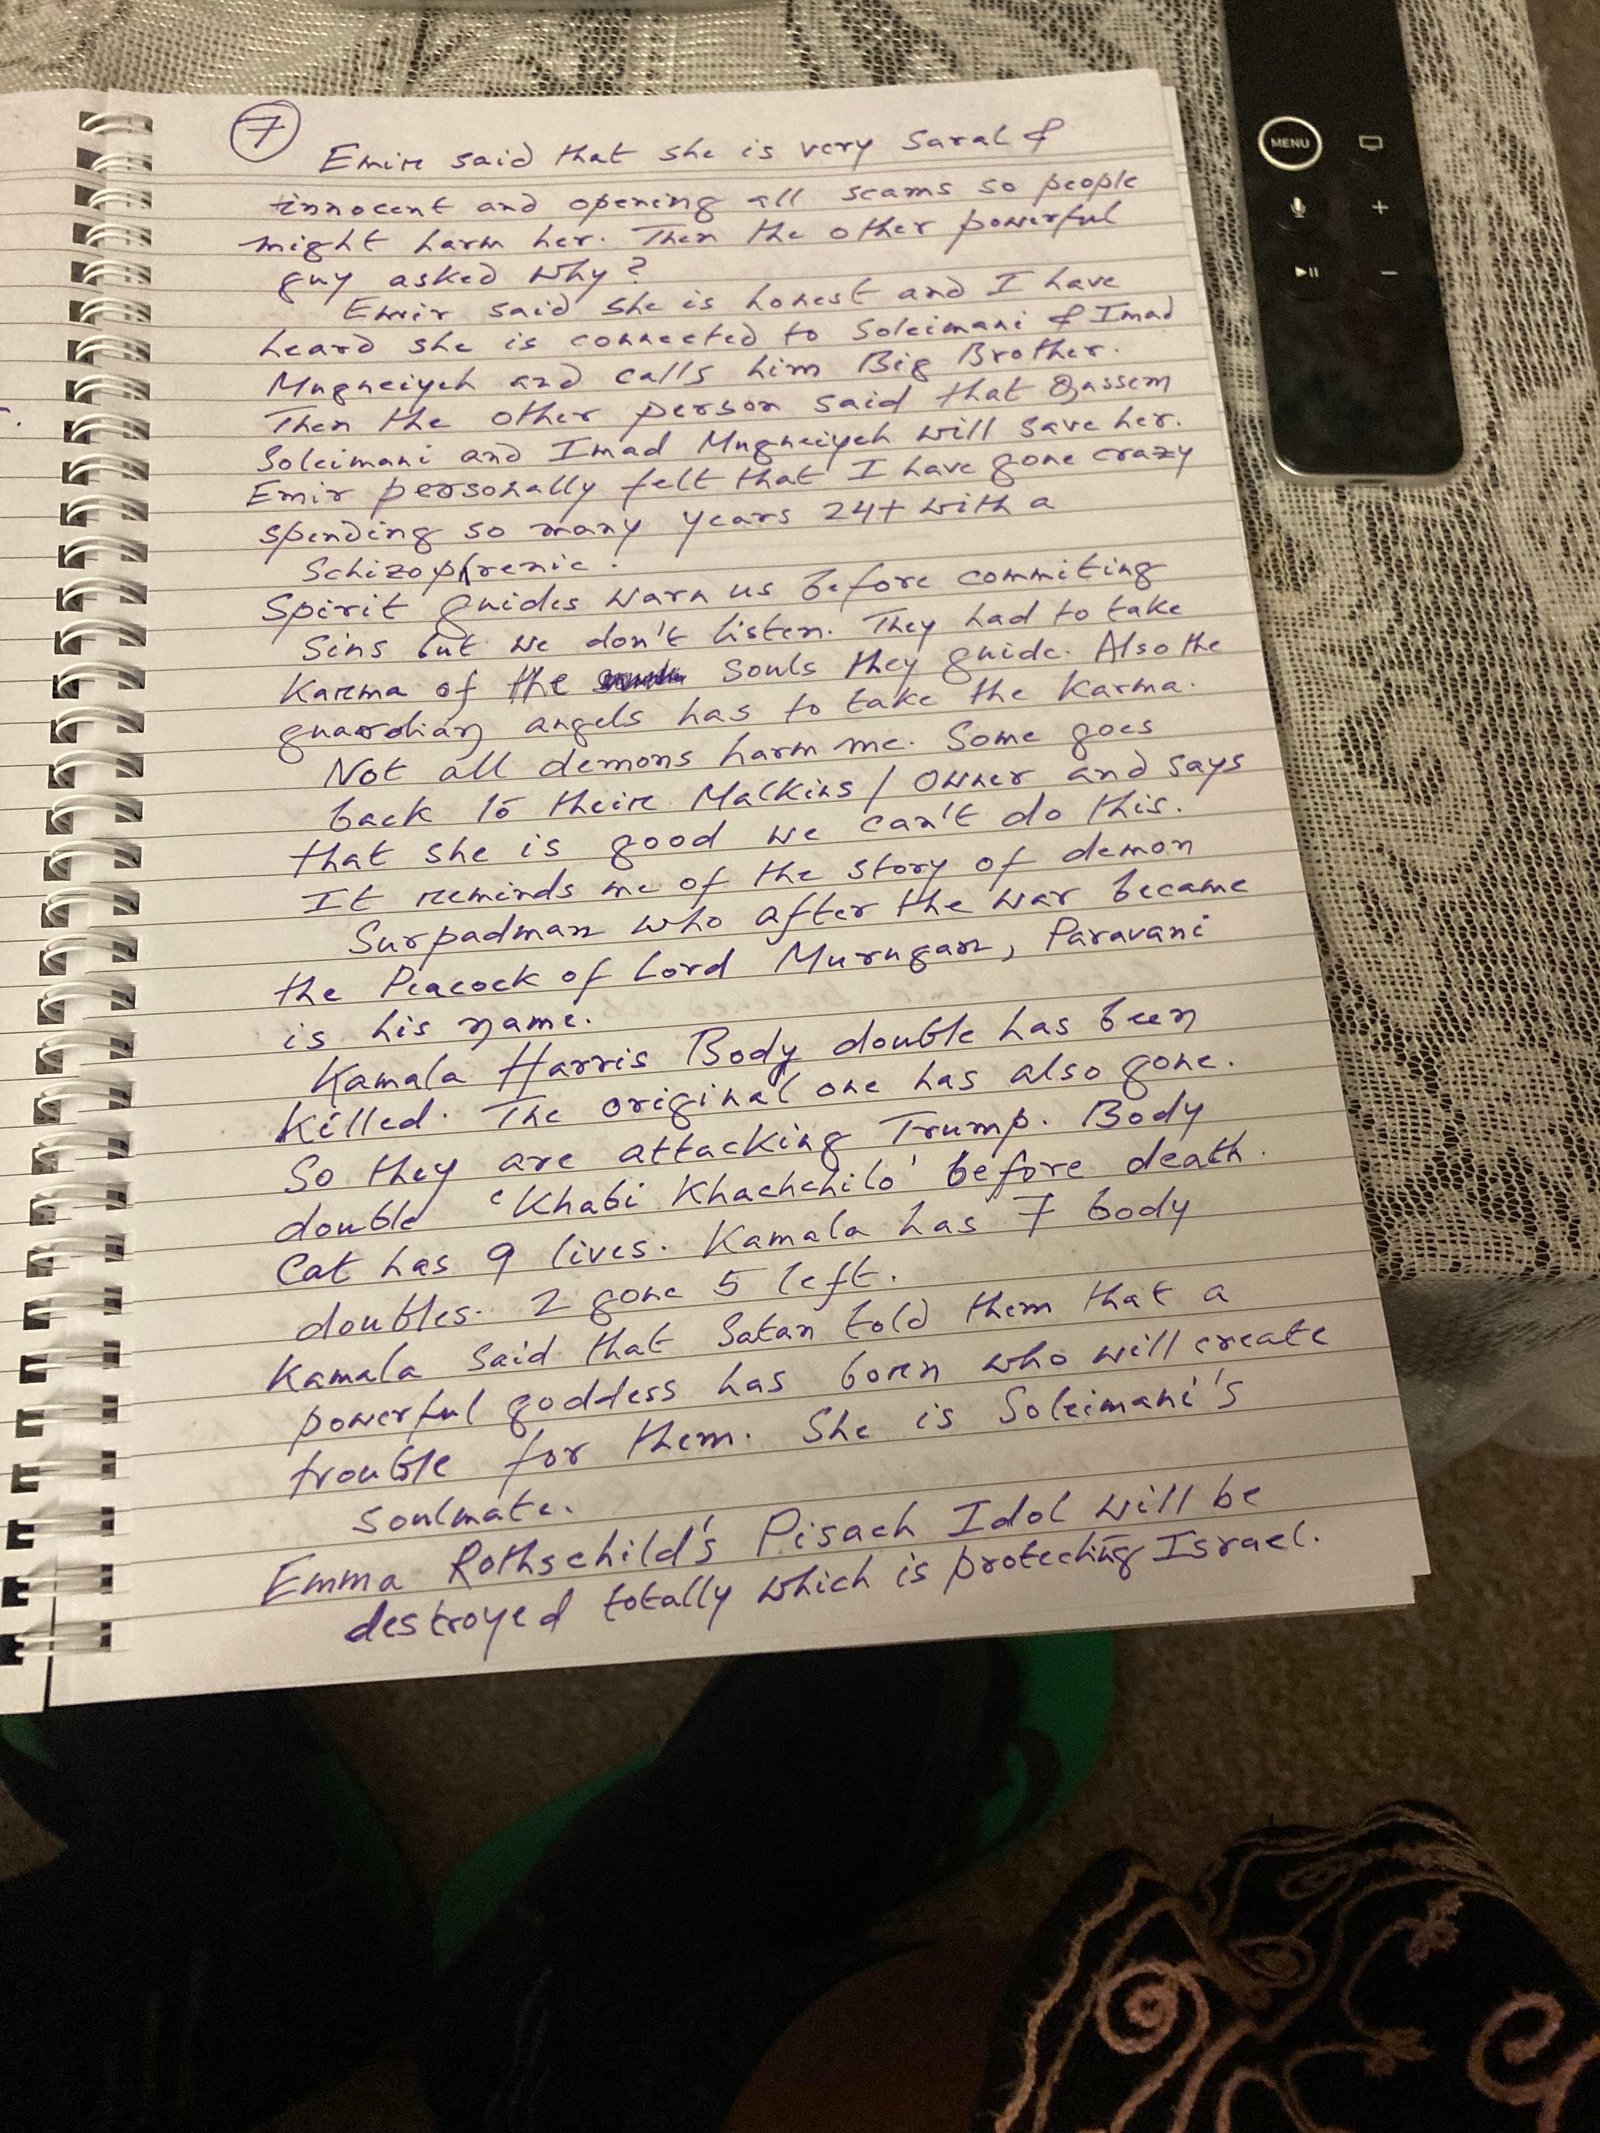 7
Emir said that she is very Saral &
innocent and opening all scams so people
might harm her. Then the other powerful
guy asked why?
Emir said she is honest and I have
heard she is connected to Soleimani & Imad
Mugneiyeh and calls him Big Brother.
Then the other person said that Qassem
Soleimani and Imad Mugneiyeh will save her.
Emir personally felt that I have gone crazy
spending so many years 24+ with a
Schizophrenic.
Spirit guides warn us before commiting
Sins but we don't listen. They had to take
Karma of the souls they guide. Also the
guardian angels has to take the Karma.
Not all demons harm me. Some goes
back to their Malkins / Owner and says
that she is good we can't do this.
It reminds me of the story of demon
Surpadman who after the war became
the Peacock of Lord Murugan, Paravani
is his name.
Kamala Harris Body double has been
killed. The original one has also gone.
So they are attacking Trump. Body
double 'Khabi Khachchilo' before death.
Cat has 9 lives. Kamala has 7 body
doubles. 2 gone 5 left.
Kamala said that Satan told them that a
powerful goddess has born who will create
trouble for them. She is Soleimani's
soulmate.
Emma Rothschild's Pisach Idol will be
destroyed totally which is protecting Israel.
MENU